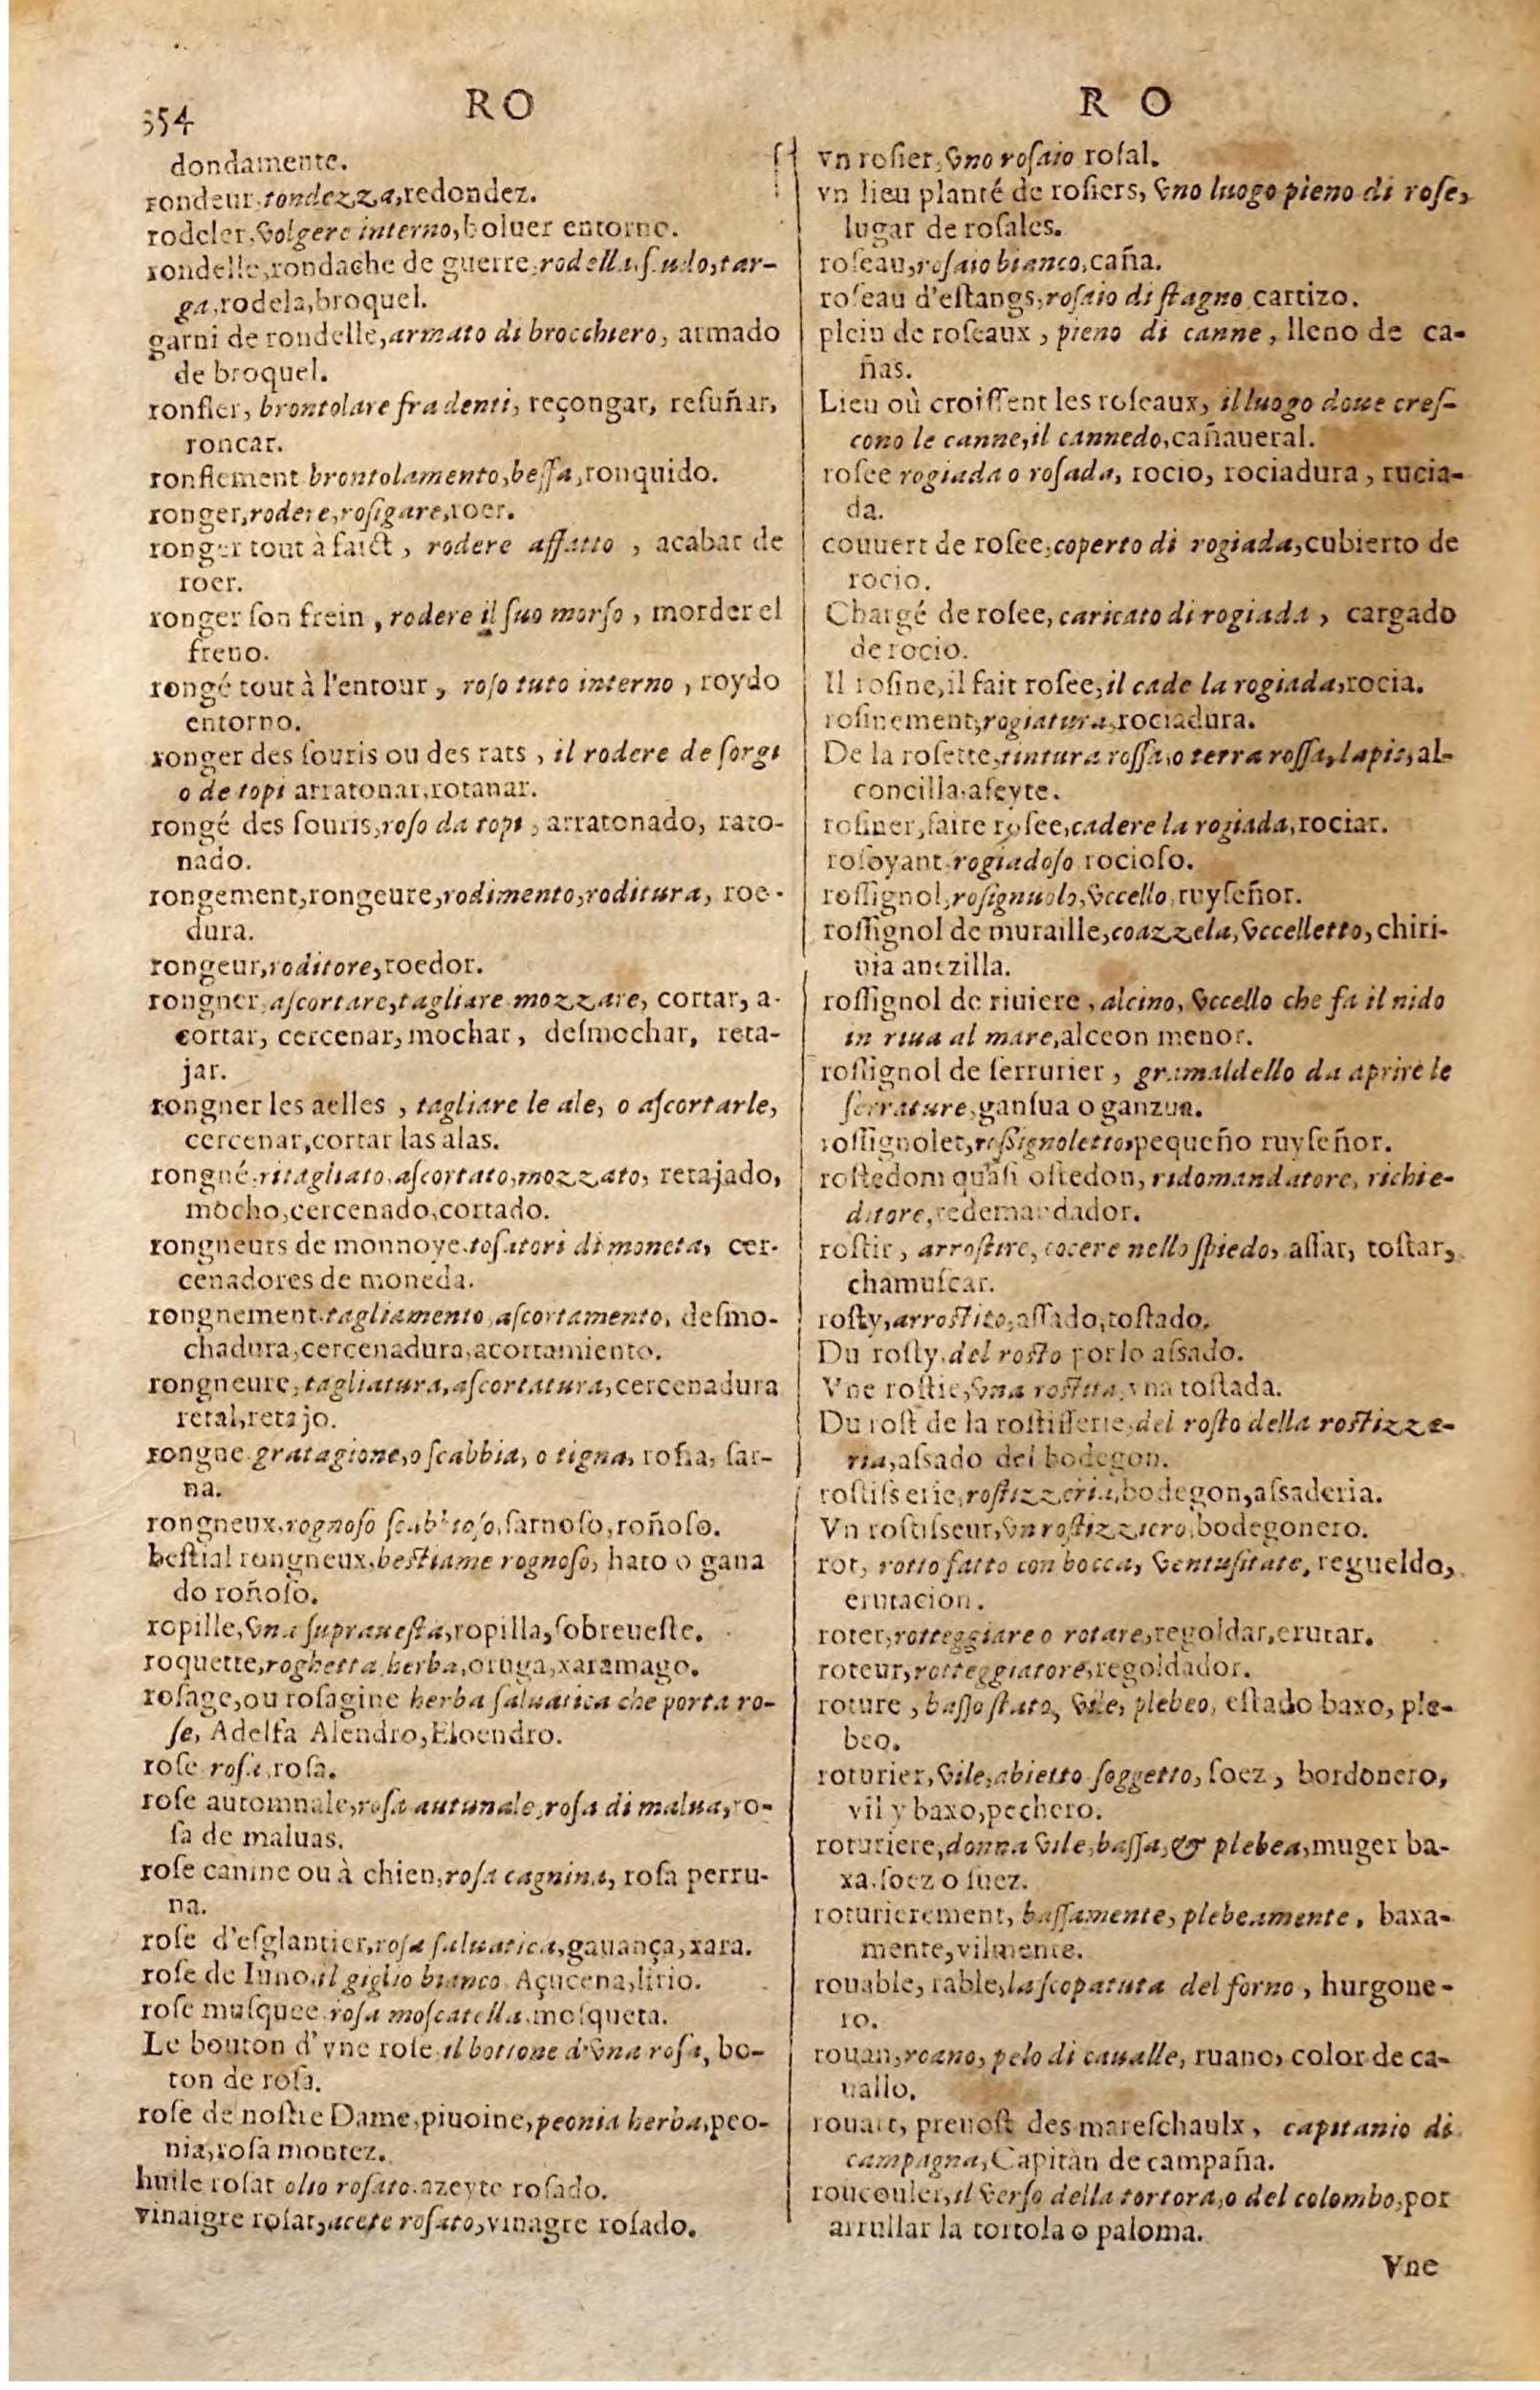 354
RO
dondamente.
rondeur, tondezza, redondez.
rodeler, volgere interno, boluer entorno.
rondelle, rondache de guerre, rodella, scudo, tar-
ga, rodela, broquel.
garni de rondelle, armato di brocchiero, armado
de broquel.
ronfler, brontolare fra denti, reçongar, resuñar,
roncar.
ronflement brontolamento, beffa, ronquido.
ronger, rodere, rosigare, roer.
ronger tout à faict, rodere affatto, acabar de
roer.
ronger son frein, rodere il suo morso, morder el
freno.
rongé tout à l'entour, roso tuto interno, roydo
entorno.
ronger des souris ou des rats, il rodere de sorgi
o de topi arratonar, rotanar.
rongé des souris, roso da topi, arratonado, rato-
nado.
rongement, rongeure, rodimento, roditura, roe-
dura.
rongeur, roditore, roedor.
rongner, ascortare, tagliare mozzare, cortar, a-
cortar, cercenar, mochar, desmochar, reta-
jar.
rongner les aelles, tagliare le ale, o ascortarle,
cercenar, cortar las alas.
rongné, ritagliato, ascortato, mozzato, retajado,
mocho, cercenado, cortado.
rongneurs de monnoye, tosatori di moneta, cer-
cenadores de moneda.
rongnement, tagliamento, ascortamento, desmo-
chadura, cercenadura, acortamiento.
rongneure, tagliatura, ascortatura, cercenadura
retal, retajo.
rongne gratagione, o scabbia, o tigna, roña, sar-
na.
rongneux, rognoso scabbioso, sarnoso, roñoso.
bestial rongneux, bestiame rognoso, hato o gana
do roñoso.
ropille, vna soprauesta, ropilla, sobreueste.
roquette, roghetta herba, oruga, xaramago.
rosage, ou rosagine herba saluatica che porta ro-
se, Adelfa Alendro, Eloendro.
rose rosa, rosa.
rose automnale, rosa autunale, rosa di malua, ro-
sa de maluas.
rose canine ou à chien, rosa cagnina, rosa perru-
na.
rose d'esglantier, rosa saluatica, gauança, xara.
rose de Iuno, il giglio bianco Açucena, lirio.
rose musquee, rosa moscatella, mosqueta.
Le bouton d'vne rose il bottone d'vna rosa, bo-
ton de rosa.
rose de nostre Dame, piuoine, peonia herba, peo-
nia, rosa montez.
huile rosat olio rosato, azeyte rosado.
vinaigre rosat, acete rosato, vinagre rosado.
R O
vn rosier, vno rosaio rosal.
vn lieu planté de rosiers, vno luogo pieno di rose,
lugar de rosales.
roseau, rosaio bianco, caña.
roseau d'estangs, rosaio di stagno carrizo.
plein de roseaux, pieno di canne, lleno de ca-
ñas.
Lieu où croissent les roseaux, il luogo doue cres-
cono le canne, il cannedo, cañaueral.
rosee rogiada o rosada, rocio, rociadura, rucia-
da.
couuert de rosee, coperto di rogiada, cubierto de
rocio.
Chargé de rosee, caricato di rogiada, cargado
de rocio.
Il rosine, il fait rosee, il cade la rogiada, rocia.
rosinement, rogiatura, rociadura.
De la rosette, tintura rossa, o terra rossa, lapis, al-
concilla, afeyte.
rosiner, faire rosee, cadere la rogiada, rociar.
rosoyant, rogiadoso rocioso.
rossignol, rosignuolo, vccello, ruyseñor.
rossignol de muraille, coazzela, vccelletto, chiri-
uia anezilla.
rossignol de riuiere, alcino, vccello che fa il nido
in riua al mare, alceon menor.
rossignol de serrurier, grimaldello da aprire le
serrature, gansua o ganzua.
rossignolet, rossignoletto, pequeño ruyseñor.
rostedom quasi ostedon, ridomandatore, richie-
ditore, redemandador.
rostir, arrostire, cocere nello spiedo, assar, tostar,
chamuscar.
rosty, arrostito, assado, tostado.
Du rosty, del rosto por lo assado.
Vne rostie, vna rostita, vna tostada.
Du rost de la rostisserie, del rosto della rostizze-
ria, assado del bodegon.
rostisserie, rostizzeria, bodegon, assaderia.
Vn rostisseur, vn rostizziero, bodegonero.
rot, rotto fatto con bocca, ventusitate, regueldo,
erutacion.
roter, rotteggiare o rotare, regoldar, erutar.
roteur, rotteggiatore, regoldador.
roture, basso stato, vile, plebeo, estado baxo, ple-
beo.
roturier, vile, abietto soggetto, soez, bordonero,
vil y baxo, pechero.
roturiere, donna vile, bassa, & plebea, muger ba-
xa, soez o suez.
roturierement, bassamente, plebeamente, baxa-
mente, vilmente.
rouable, rable, la scopatuta del forno, hurgone-
ro.
rouan, roano, pelo di caualle, ruano, color de ca-
uallo.
rouart, preuost des mareschaulx, capitanio di
campagna, Capitan de campaña.
roucouler, il verso della tortora, o del colombo, por
arrullar la tortola o paloma.
Vne